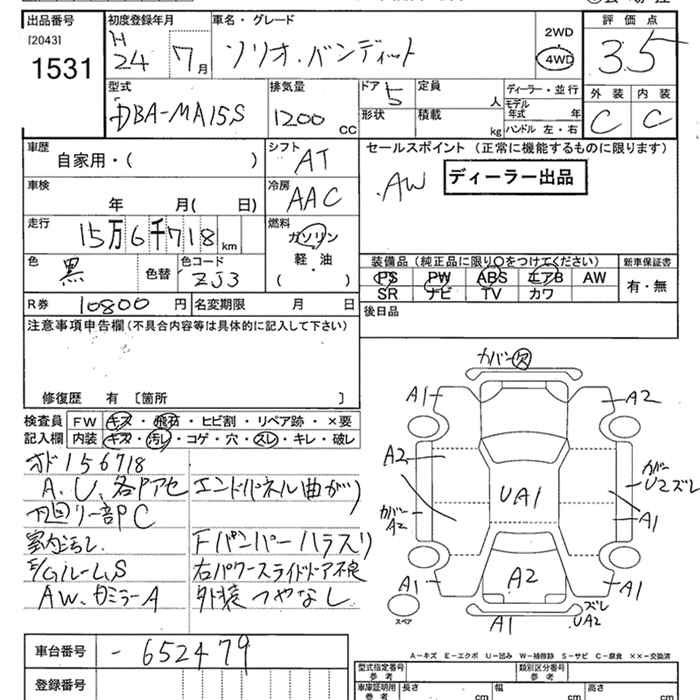 出品番号
[2043]
1531
初度登録年月
H
24 7月
車名・グレード
ソリオ・バンディット
2WD
4WD
評価点
3.5
外装 内装
C C
型式
DBA-MA15S
排気量
1200 CC
ドア
5
形状
定員
人
積載
kg
ディーラー・並行
モデル年式 年
ハンドル 左・右
車歴
自家用・( )
シフト
AT
車検
年 月( 日)
冷房
AAC
走行
15万6千718km
燃料
ガソリン
軽・油
( )
色
黒
色替
色コード
ZJ3
R券 10800円
名変期限 月 日
セールスポイント (正常に機能するものに限ります)
AW
ディーラー出品
装備品(純正品に限り〇をつけてください)
PS PW ABS エアB AW
SR ナビ TV カワ
新車保証書
有・無
後日品
注意事項申告欄(不具合内容等は具体的に記入して下さい)
修復歴 有〔箇所 〕
検査員記入欄
FW キズ・飛石・ヒビ割・リペア跡・×要
内装 キズ・汚レ・コゲ・穴・スレ・キレ・破レ
オド156718
A、U、各Pアセ
エンドパネル曲がり
室内汚レ
Fバンパーハラスリ
E/Gルーム S
右パワースライドドア不良
AW、カミラーA
外装つやなし
カバー欠
A1
A2
A2
カバー
U2ズレ
UA1
カバー
A2
A1
A1
A2
A1
スペア
A1
ズレ
UA2
A-キズ E-エクボ U-凹み W-補修跡 S-サビ C-腐食 ××-交換済
車台番号
-652479
登録番号
型式指定番号
参考
類別区分番号
参考
車庫証明用
参考
長さ cm
幅 cm
高さ cm